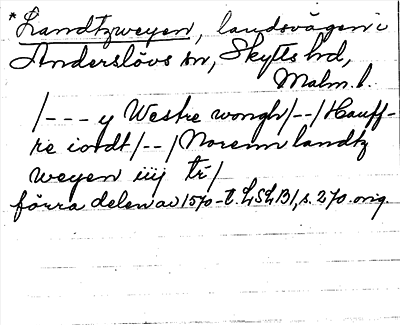 *Landtzweyen, landsvägen i
Anderslövs sn, Skytts hd,
Malm. l.
/--- y Westre wongh/--/Hauff-
re iordt/--/Norenn landtz
weyen iiij tr/
förra delen av 1570-t. LSLB1, s. 270. orig.